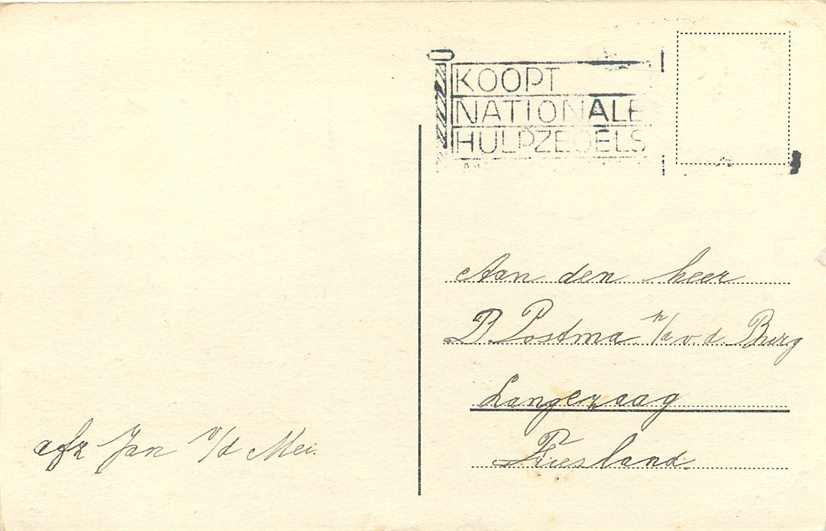 KOOPT
NATIONALE
HULPZEGELS
Aan den heer
P. Postma p/a v. d. Burg
Langezaag
Friesland.
afz Jan v/d Mei.